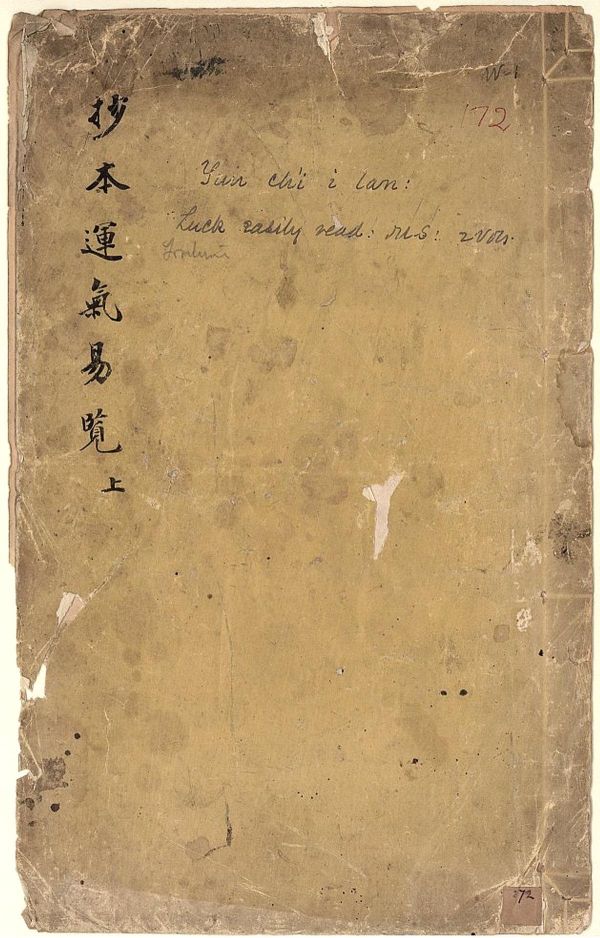 抄本運氣易覧 上
W-1
172
Yun ch'i i lan:
Luck easily read: M.S: 2 Vols.
172